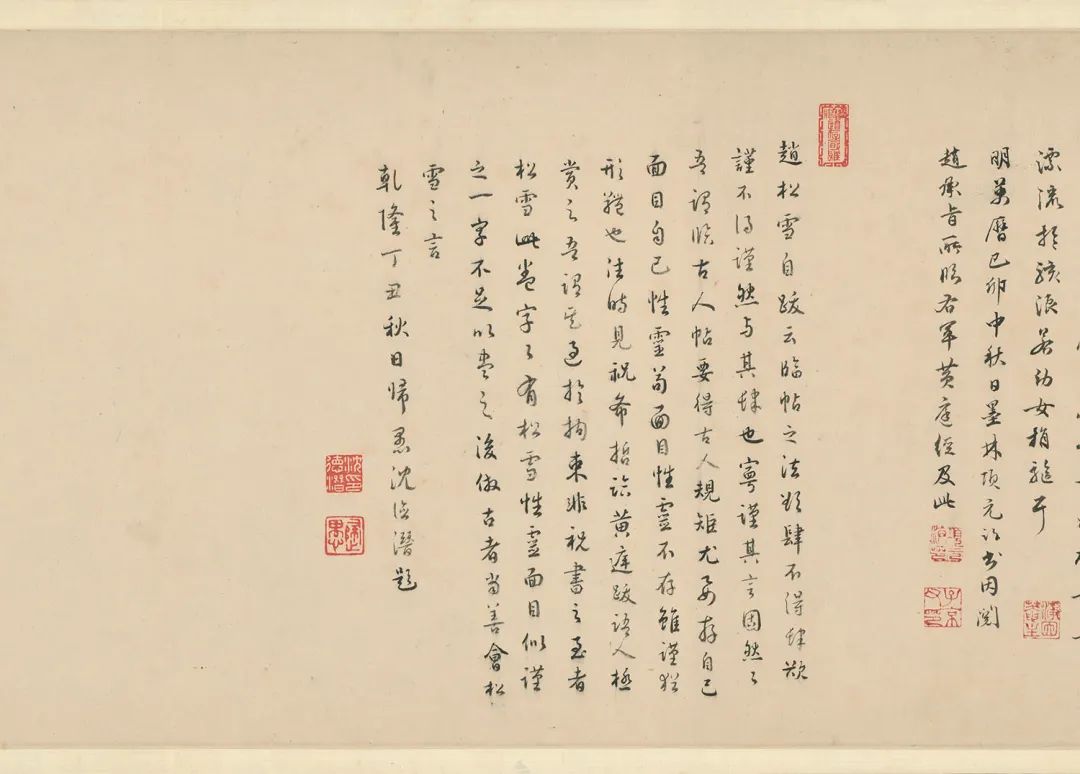 漂流於駭浪若幼女稍
明萬曆己卯中秋日墨林項元汴書因閱
趙承旨所臨右軍黃庭經及此
子京父印
趙松雪自跋云臨帖之法欲肆不得肆欲
謹不得謹然與其肆也寧謹其言固然々
吾謂臨古人帖要得古人規矩尤要存自己
面目自己性靈苟面目性靈不存雖謹猶
形骸也往時見祝希哲臨黃庭跋語人極
賞之吾謂其過於拘束非祝書之至者
松雪此卷字々有松雪性靈面目似謹
之一字不足以盡之後倣古者當善會松
雪之言
乾隆丁丑秋日歸愚沈德潛題
沈印德潛
歸愚